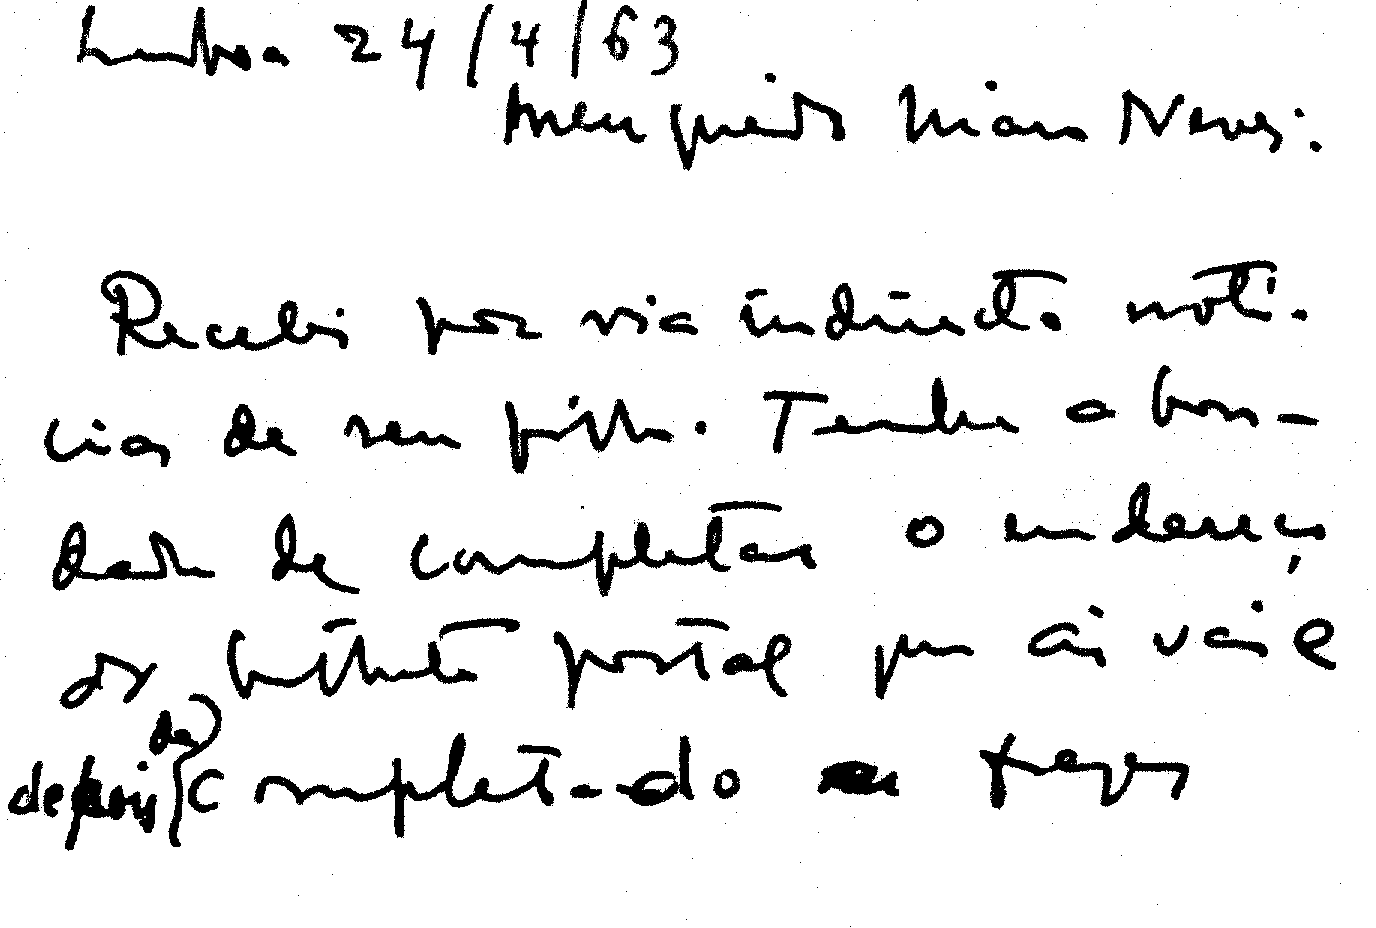 Lisboa 24/4/63
Meu querido Mário Neves:
Recebi por via indirecta notí-
cias de seu filho. Tenha a bon-
dade de completar o endereço
do bilhete postal que aí vai e
depois de completado